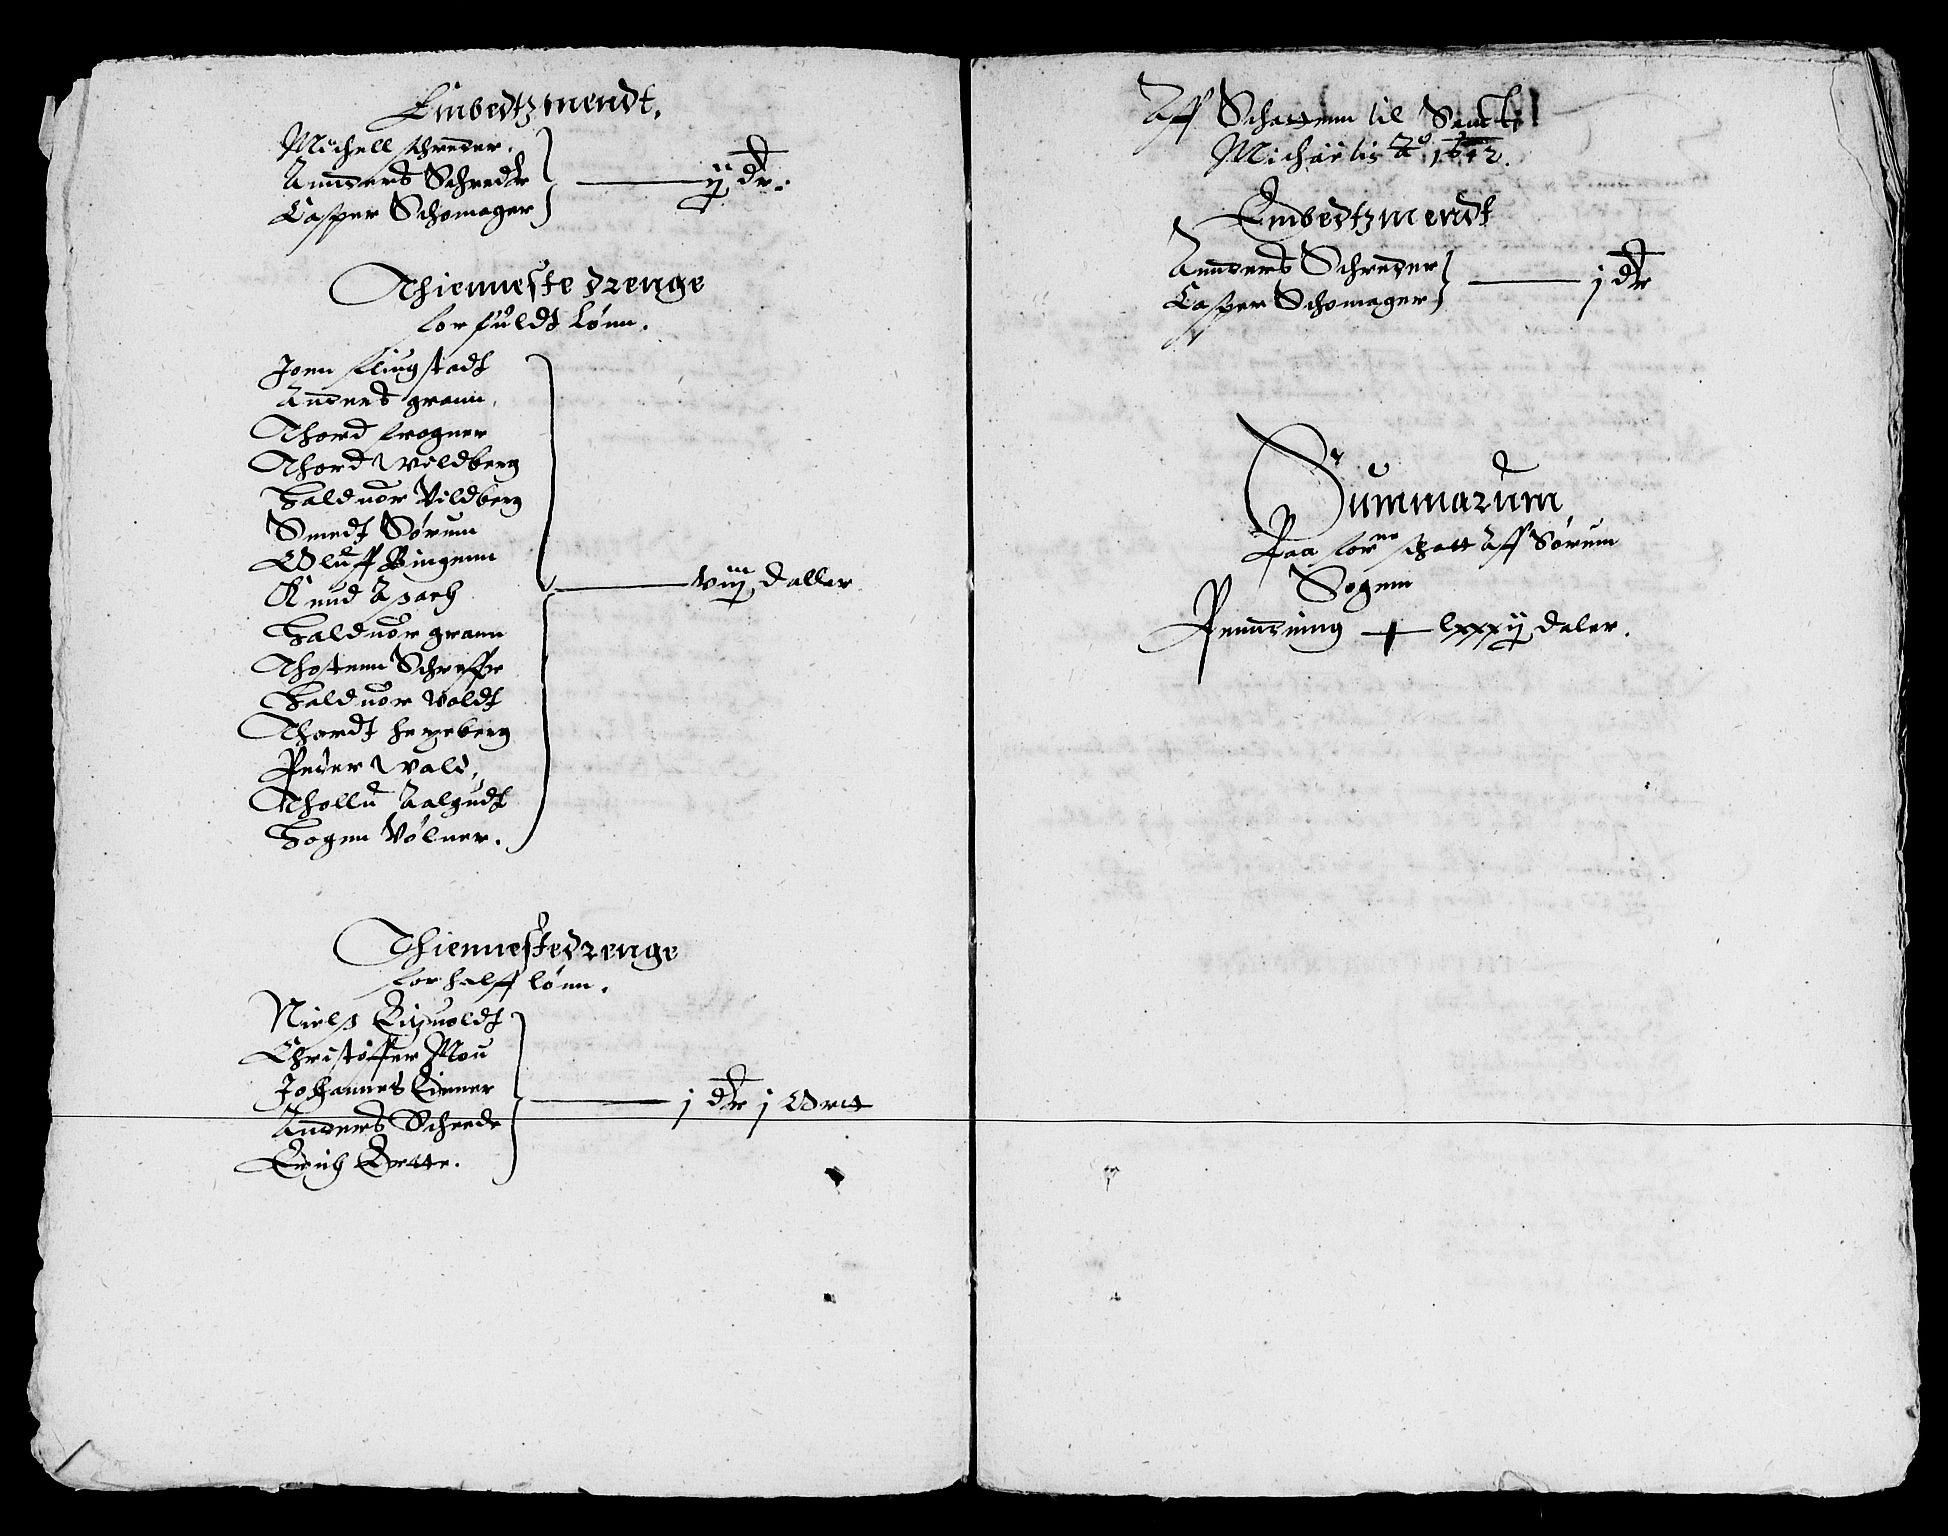 Embedtzmendt.
Michell schreder.
Annders Schreder
Casper Schomager
ij dr.
Thienneste drenge
for fuldt Lønn.
Joen flingstadt
Anders grann
Thord frogner
Thord Wildberg
Halduor Vildberg
Smedt Sørum
Oluff Bingenn
Knud Asach
Halduor grann
Thostenn Schreffe
Halduor Woldt
Thordt heyeberg
Peder Wald
Thollu Aalgudt
Hogen Vølner.
viij daller
Thienneste drenge
for halff lønn.
Nielss Eitzuoldt
Christoffer Mou
Johannes Einner
Anders Schrede
Erich Grette.
j dr j Ortt
Aff Schattenn til Sancti
Michaelis Ao 1642.
Embedtzmendt
Annders Schreder
Casper Schomager
j dr
Summarum
Paa forne schatt Aff Sørum
Sogenn
Penndning + lxxxij daler.